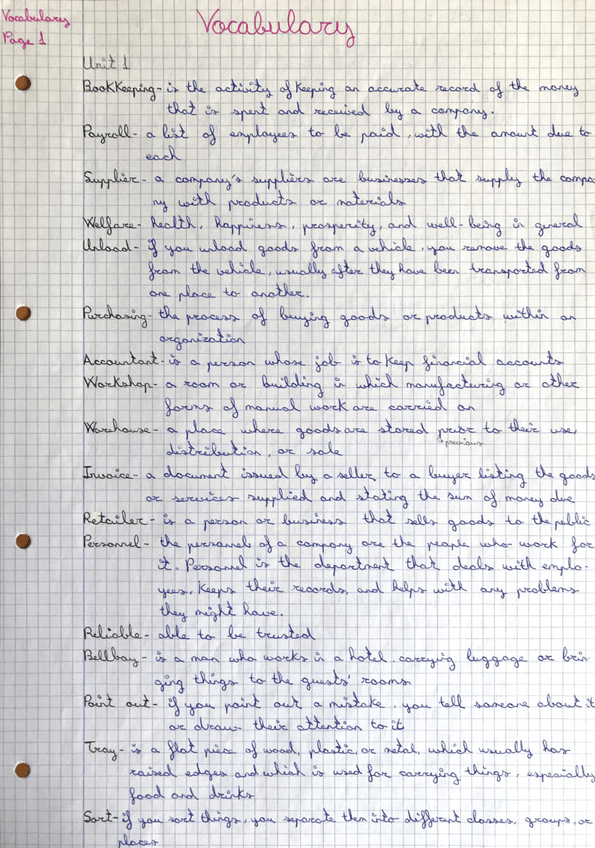 Vocabulary
Page 1
Vocabulary
Unit 1
BookKeeping- is the activity of keeping an accurate record of the money
that is spent and received by a company.
Payroll- a list of employees to be paid, with the amount due to
each
Supplier- a company's suppliers are businesses that supply the compa
ny with products or materials
Welfare- health, happiness, prosperity, and well-being in general
Unload- if you unload goods from a vehicle, you remove the goods
from the vehicle, usually after they have been transported from
one place to another.
Purchasing- the process of buying goods or products within an
organization
Accountant- is a person whose job is to keep financial accounts
Workshop- a room or building in which manufacturing or other
forms of manual work are carried on
Warehouse- a place where goods are stored prior to their use,
previous
distribution, or sale
Invoice- a document issued by a seller to a buyer listing the goods
or services supplied and stating the sum of money due
Retailer- is a person or business that sells goods to the public
Personnel- the personnel of a company are the people who work for
it. Personnel is the department that deals with emplo-
yees, keeps their records, and helps with any problems
they might have.
Reliable- able to be trusted
Bellboy- is a man who works in a hotel, carrying luggage or brin
ging things to the guests' rooms
Point out- if you point out a mistake, you tell someone about it
or draw their attention to it
Tray- is a flat piece of wood, plastic, or metal, which usually has
raised edges and which is used for carrying things, especially
food and drinks
Sort- if you sort things, you separate them into different classes, groups, or
places